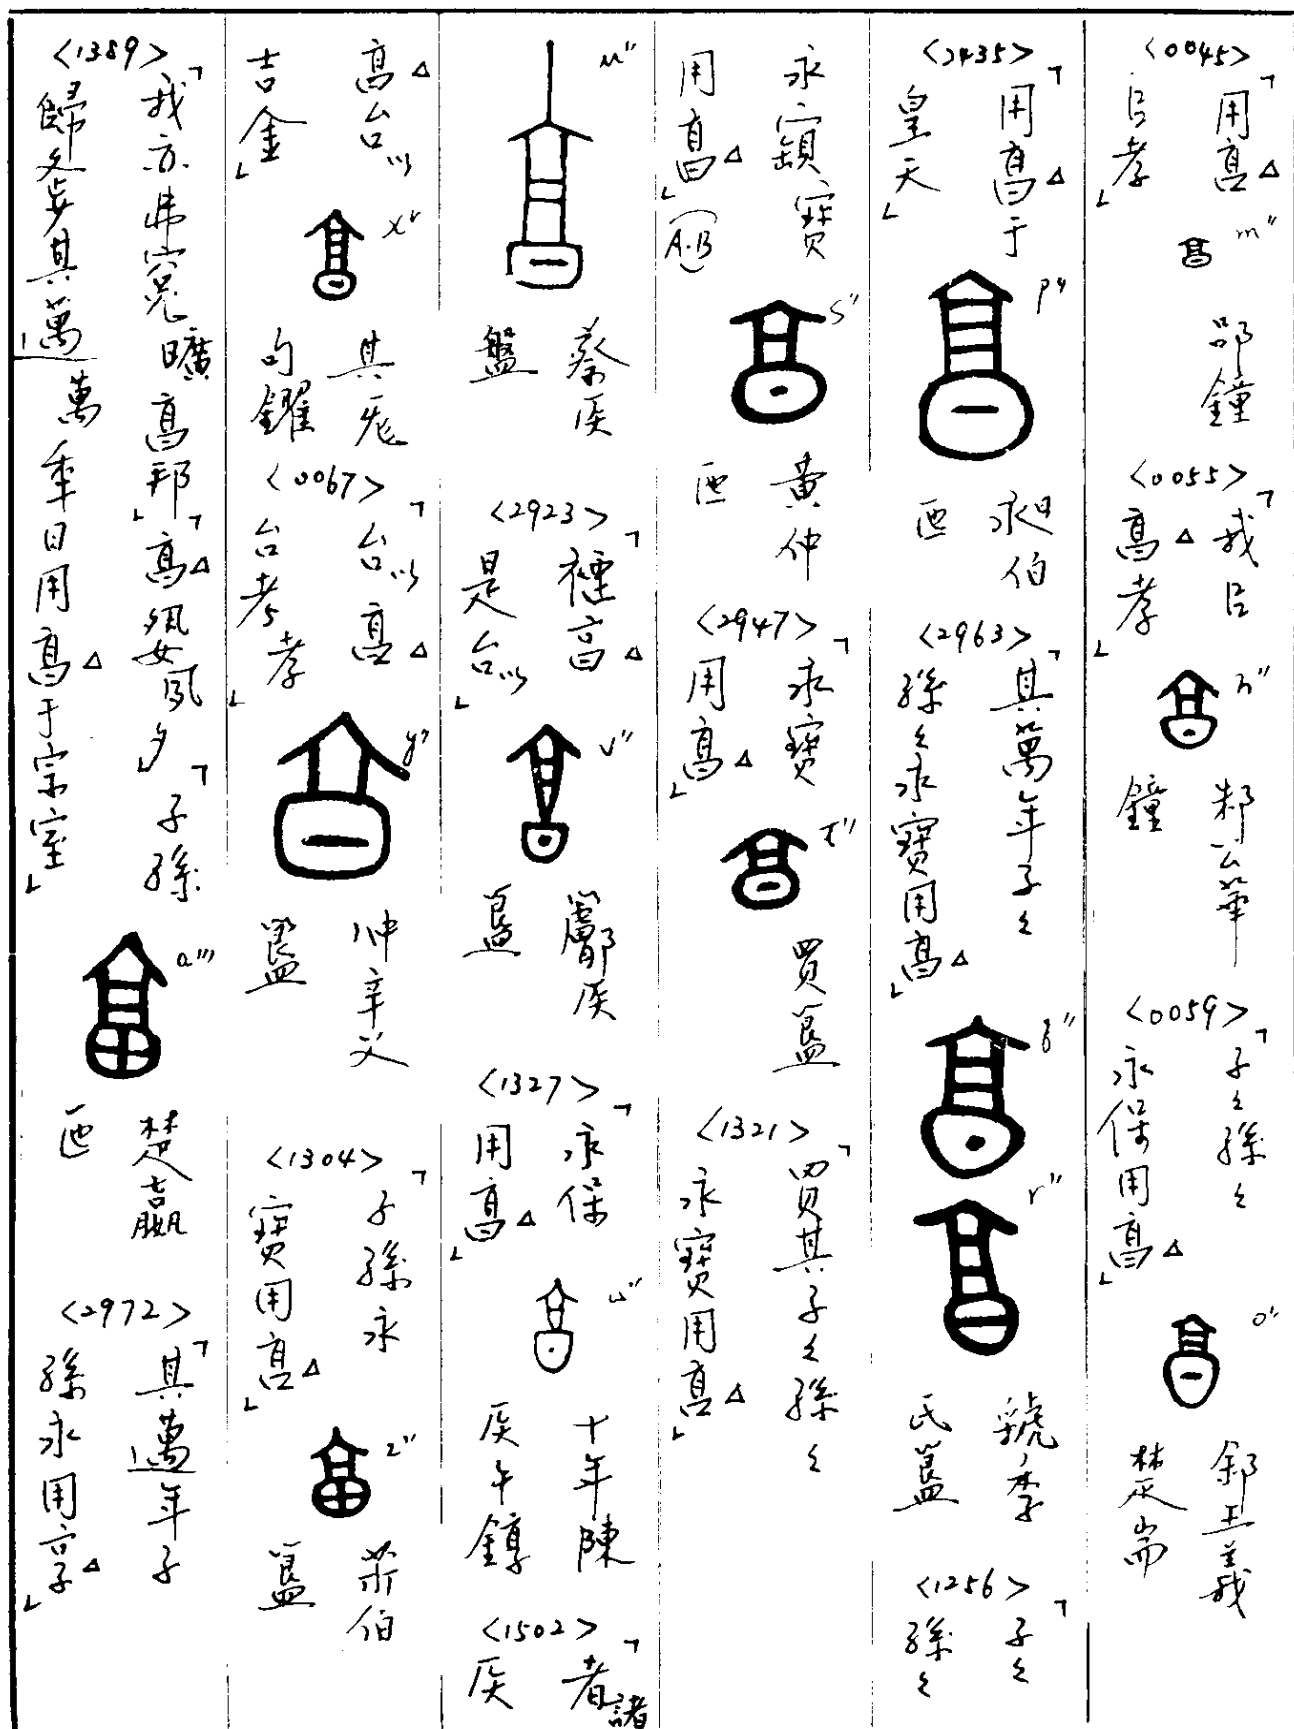 <0045>
「用亯△
㠯孝」
m"
郘鐘
<0055>
「哉㠯
亯△孝」
n"
邾公華
鐘
<0059>
「子〻孫〻
永保用亯△」
o"
䣄王義
楚耑
<2435>
「用亯△于
皇天」
p"
伯
匜
<2963>
「其萬年子〻
孫〻永寶用亯△」
q"
r"
虢季
氏簋
<1256>
「子〻
孫〻
永寶
用亯△」(A·B)
s"
黃仲
匜
<2947>
「永寶
用亯△」
t"
買簋
<1321>
「買其子〻孫〻
永寶用亯△」
u"
蔡侯
盤
<2923>
「禋亯△
是台以」
v"
侯
簋
<1327>
「永保
用亯△」
w"
十年陳
侯午錞
<1502>
「者諸
侯
亯△台以
吉金」
x"
其
句鑃
<0067>
「台以亯△
台考孝」
y"
仲辛父
簋
<1304>
「子孫永
寶用亯△」
z"
伯
簋
<1389>
「我亦弗曠亯邦」「亯△夙夕」「子孫
歸其邁萬年日用亯△于宗室」
a'''
楚嬴
匜
<2972>
「其邁年子
孫永用享△」